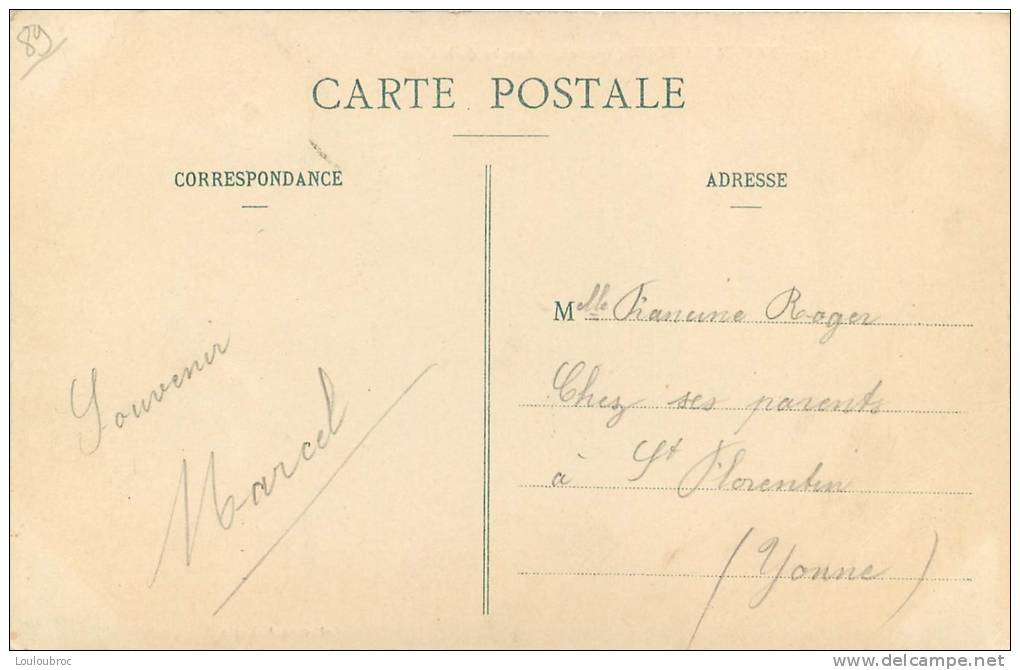 89
CARTE POSTALE
CORRESPONDANCE
Souvenir
Marcel
ADRESSE
Mlle Francine Roger
Chez ses parents
à St Florentin
(Yonne)
Louloubroc
www.delcampe.net